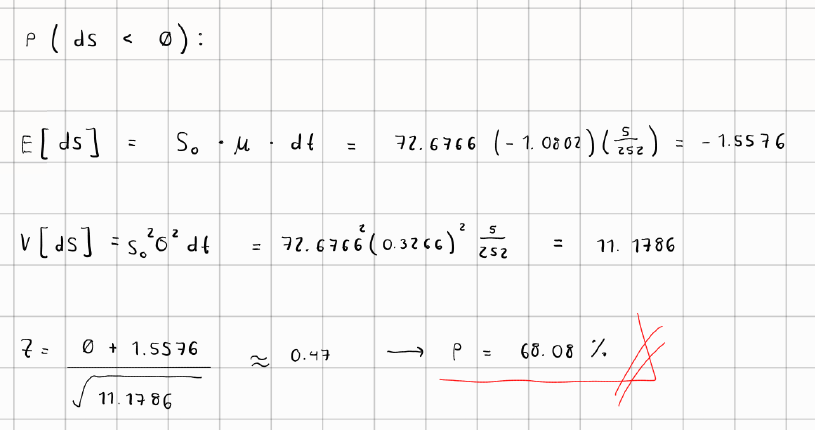 P ( ds < Ø ) :
E[ds] = S₀ · μ · dt = 72.6766 (-1.0802)(5/252) = -1.5576
V[ds] = S₀²σ² dt = 72.6766²(0.3266)² 5/252 = 11.1786
Z = (Ø + 1.5576)/√11.1786 ≈ 0.47 → P = 68.08 %